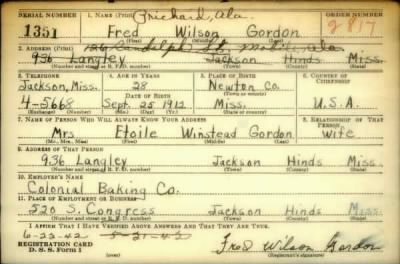 SERIAL NUMBER 1. NAME (Print) Prichard, Ala. ORDER NUMBER
1351 Fred Wilson Gordon 2817
(First) (Middle) (Last)
2. ADDRESS (Print) 126 Randolph St. Mobile, Ala
936 Langley Jackson Hinds Miss.
(Number and street or R. F. D. number) (Town) (County) (State)
3. TELEPHONE 4. AGE IN YEARS 5. PLACE OF BIRTH 6. COUNTRY OF CITIZENSHIP
Jackson, Miss. 28 Newton Co.
DATE OF BIRTH
4-5668 Sept. 25 1912 Miss. U.S.A.
7. NAME OF PERSON WHO WILL ALWAYS KNOW YOUR ADDRESS 8. RELATIONSHIP OF THAT PERSON
Mrs Etoile Winstead Gordon Wife
(Mr., Mrs., Miss) (First) (Middle) (Last)
9. ADDRESS OF THAT PERSON
936 Langley Jackson Hinds Miss.
(Number and street or R. F. D. number) (Town) (County) (State)
10. EMPLOYER'S NAME
Colonial Baking Co.
11. PLACE OF EMPLOYMENT OR BUSINESS
520 S. Congress Jackson Hinds Miss.
(Number and street or R. F. D. number) (Town) (County) (State)
I AFFIRM THAT I HAVE VERIFIED ABOVE ANSWERS AND THAT THEY ARE TRUE.
6-22-42
REGISTRATION CARD
D. S. S. Form 1 Fred Wilson Gordon
(Registrant's signature)